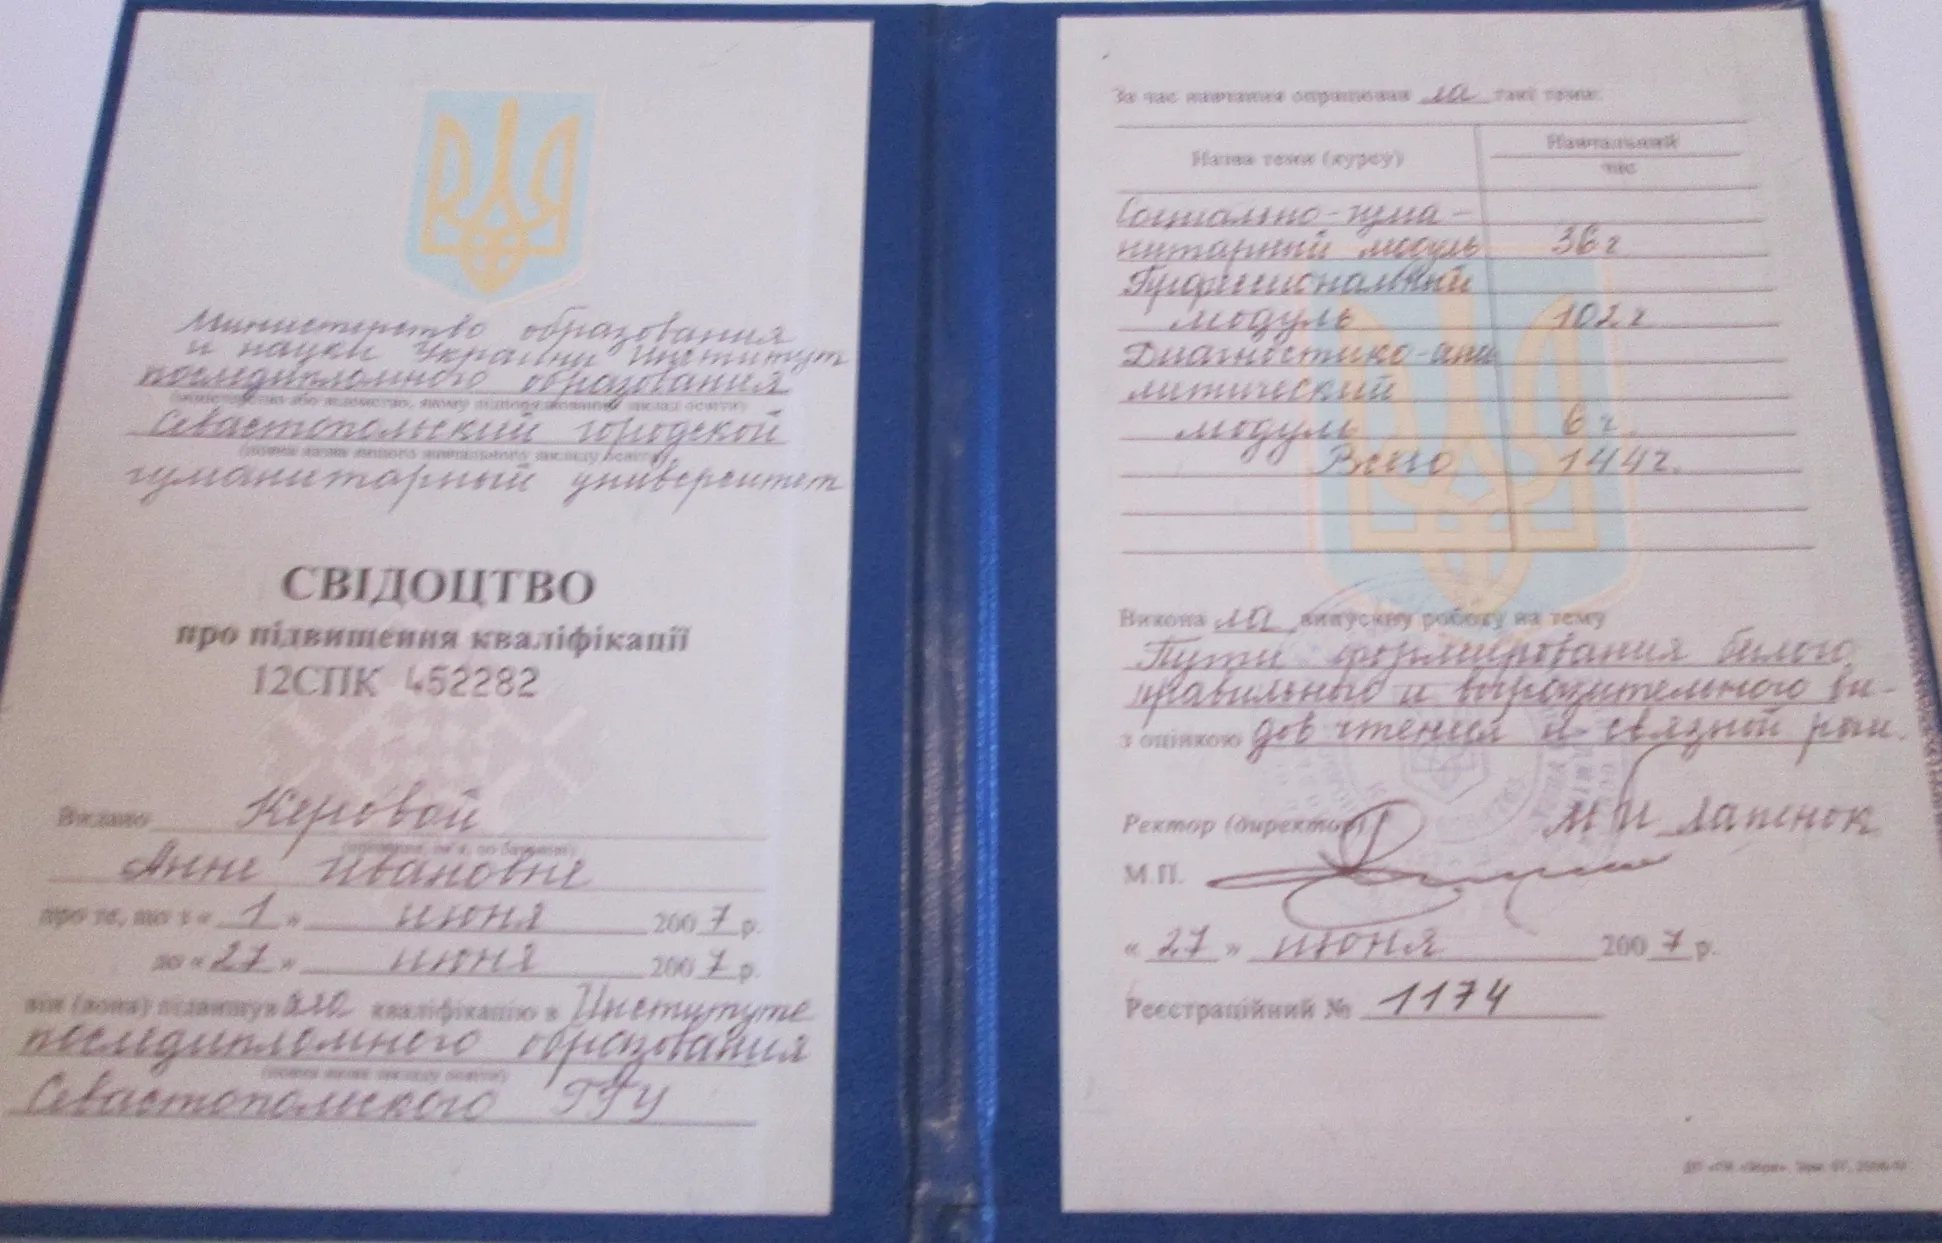 Министерство образования
и науки Украины Институт
последипломного образования
(міністерство або відомство, якому підпорядкований заклад освіти)
Севастопольский городской
гуманитарный университет
СВІДОЦТВО
про підвищення кваліфікації
12СПК 452282
Видано Керовой
(прізвище, ім'я, по батькові)
Анне Ивановне
про те, що з « 1 » июня 2007 р.
до « 27 » июня 2007 р.
він (вона) підвищув ала кваліфікацію в Институте
последипломного образования
(повна назва закладу освіти)
Севастопольского ГГУ
За час навчання опрацював ла такі теми:
Назва теми (курсу) Навчальний
час
Социально-гума-
нитарный модуль 36 г
Професиональный
модуль 102 г
Диагностико-ана
литический
модуль 6 г.
Всего 144 г.
Викона ла випускну роботу на тему
Пути формирования беглого
правильного и выразительного ви-
з оцінкою дов чтения и связной речи.
Ректор (директор) М И Лапенок
М.П.
« 27 » июня 2007 р.
Реєстраційний № 1174